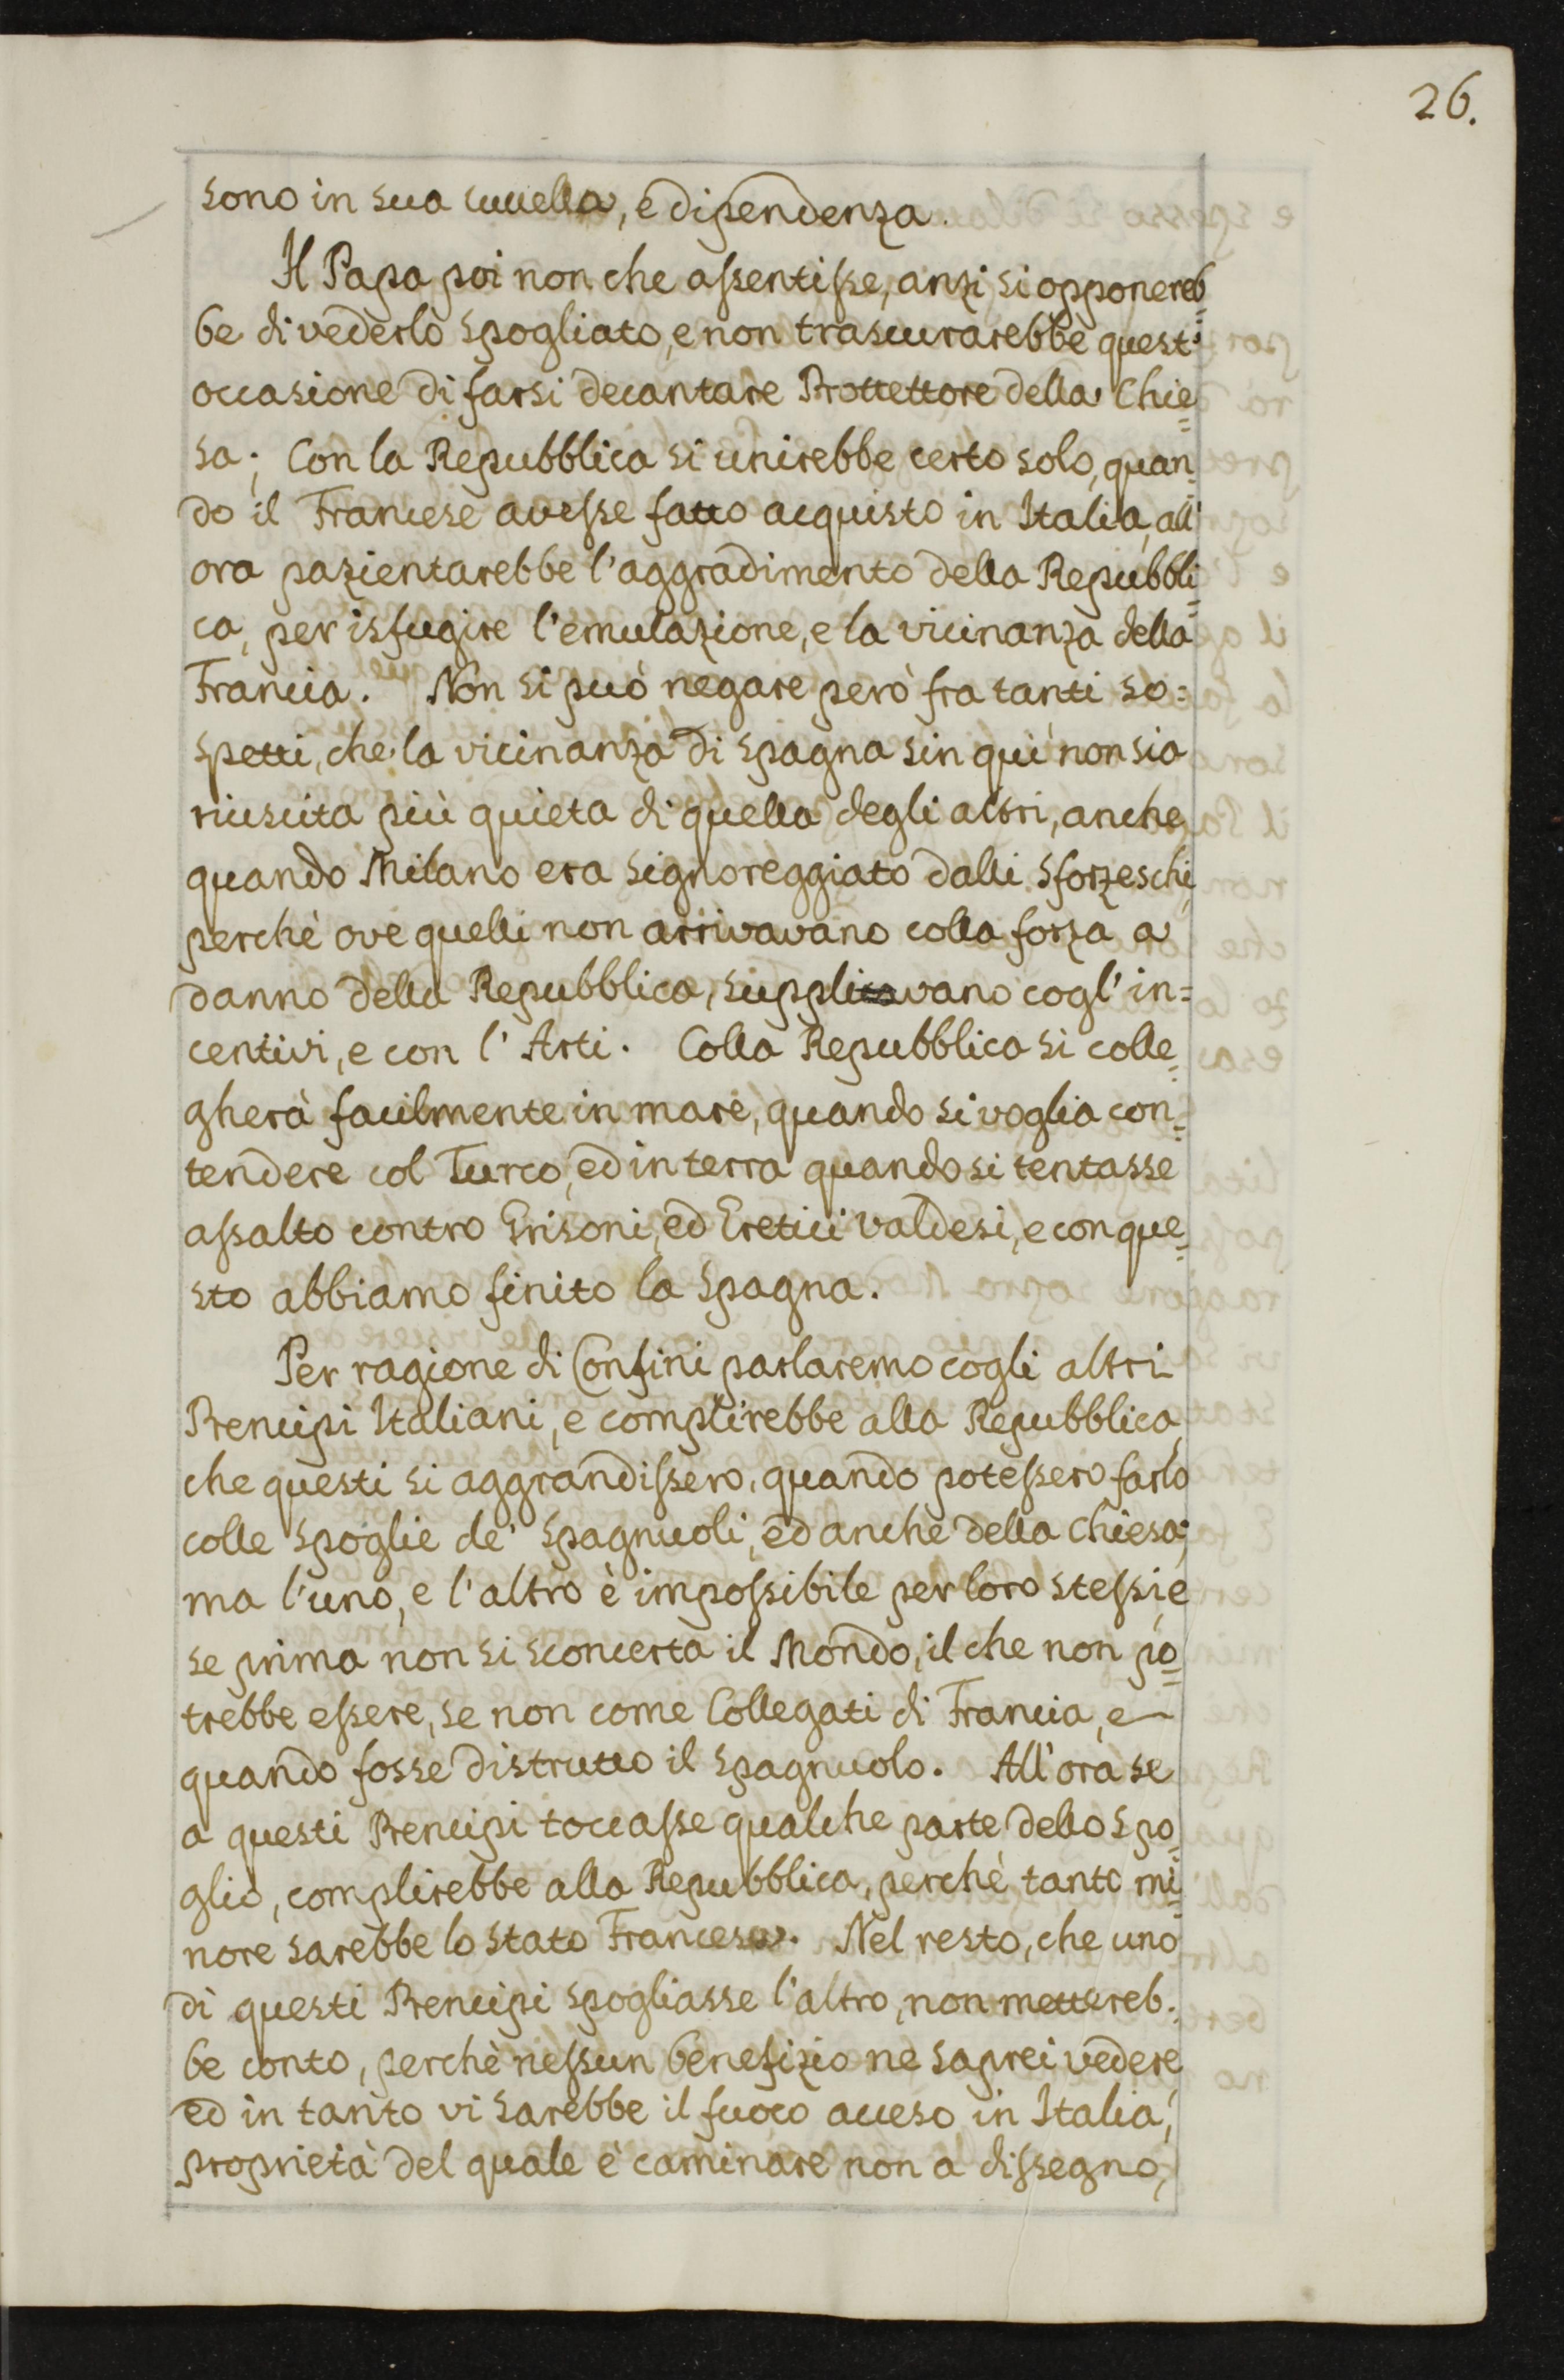 26.
sono in sua tutella, e dipendenza.
Il Papa poi non che assentisse, anzi si opponereb=
be di vederlo spogliato, e non trascurarebbe quest'
occasione di farsi decantare Prottettore della Chie=
sa; Con la Repubblica si unirebbe certo solo, quan=
do il Francese avesse fatto acquisto in Italia, all'
ora pazientarebbe l'aggradimento della Repubbli=
ca, per isfugire l'emulazione, e la vicinanza della
Francia. Non si può negare però fra tanti so=
spetti, che la vicinanza di Spagna sin quì non sia
riuscita più quieta di quella degli altri, anche
quando Milano era signoreggiato dalli Sforzeschi,
perchè ove quelli non arrivavano colla forza a
danno della Repubblica, supplicavano cogl'in=
centivi, e con l'Arti. Colla Repubblica si colle=
gherà facilmente in mare, quando si voglia con=
tendere col Turco, ed in terra quando si tentasse
assalto contro Grisoni, ed Eretici Valdesi, e con que=
sto abbiamo finito la Spagna.
Per ragione di Confini parlaremo cogli altri
Prencipi Italiani, e complirebbe alla Repubblica,
che questi si aggrandissero, quando potessero farlo
colle spoglie de' Spagnuoli, ed anche della Chiesa;
ma l'uno, e l'altro è impossibile per loro stessi, e
se prima non si sconcerta il Mondo, il che non po=
trebbe essere, se non come Collegati di Francia, e
quando fosse distrutto il Spagnuolo. All'ora se
a questi Prencipi toccasse qualche parte dello spo=
glio, complirebbe alla Repubblica, perchè tanto mi=
nore sarebbe lo stato Francese. Nel resto, che uno
di questi Prencipi spogliasse l'altro, non mettereb.
be conto, perchè nessun benefizio ne saprei vedere
ed in tanto vi sarebbe il fuoco acceso in Italia,
proprietà del quale è caminare non a dissegno,